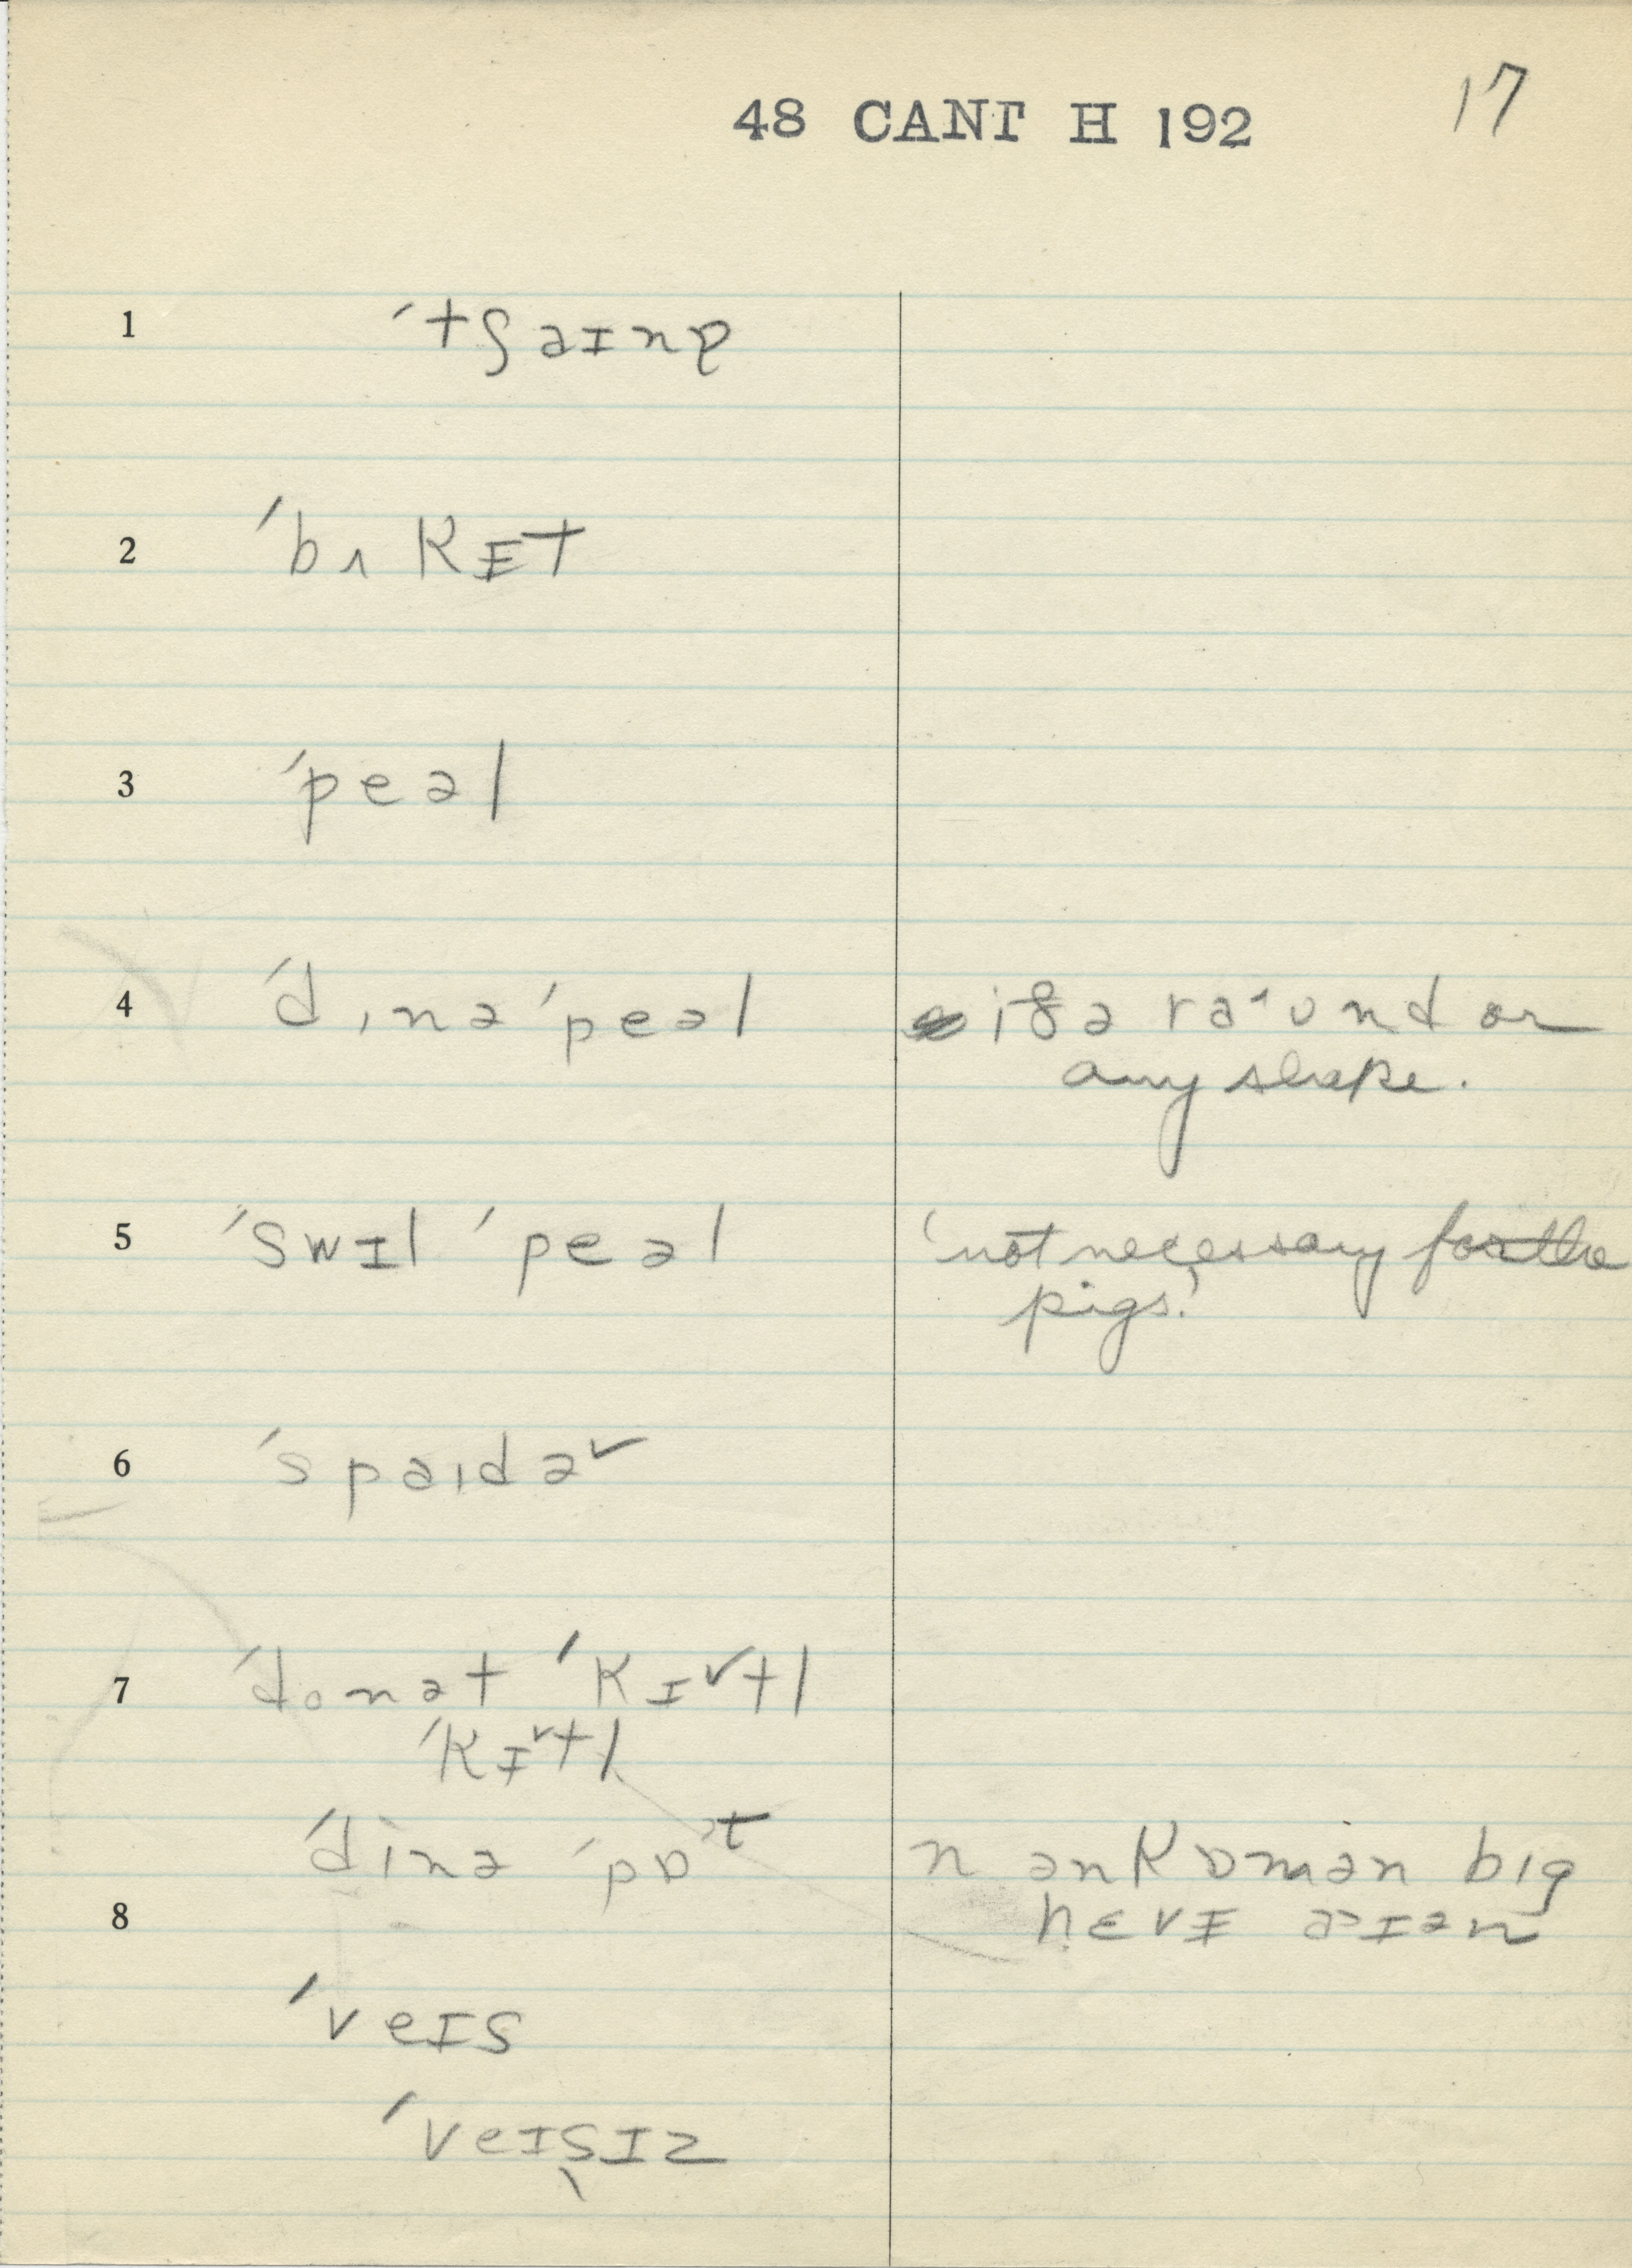 48 CANT H 192 17
1 ˈtʃaɪnə
2 ˈbʌkɪt
3 ˈpeəl
4 ˈdɪnə ˈpeəl ɪf ə raˑʊnd or
any shape.
5 ˈswɪl ˈpeəl 'not necessary for the
pigs.'
6 ˈspaɪdəʳ
7 ˈdonət ˈkɪᵛtl
ˈkɪᵛtl
ˈdinə ˈpɒᵗ n ənkɒmən bɪg
8 hɛvɪ aɪən
ˈveɪs
ˈveɪsɪz